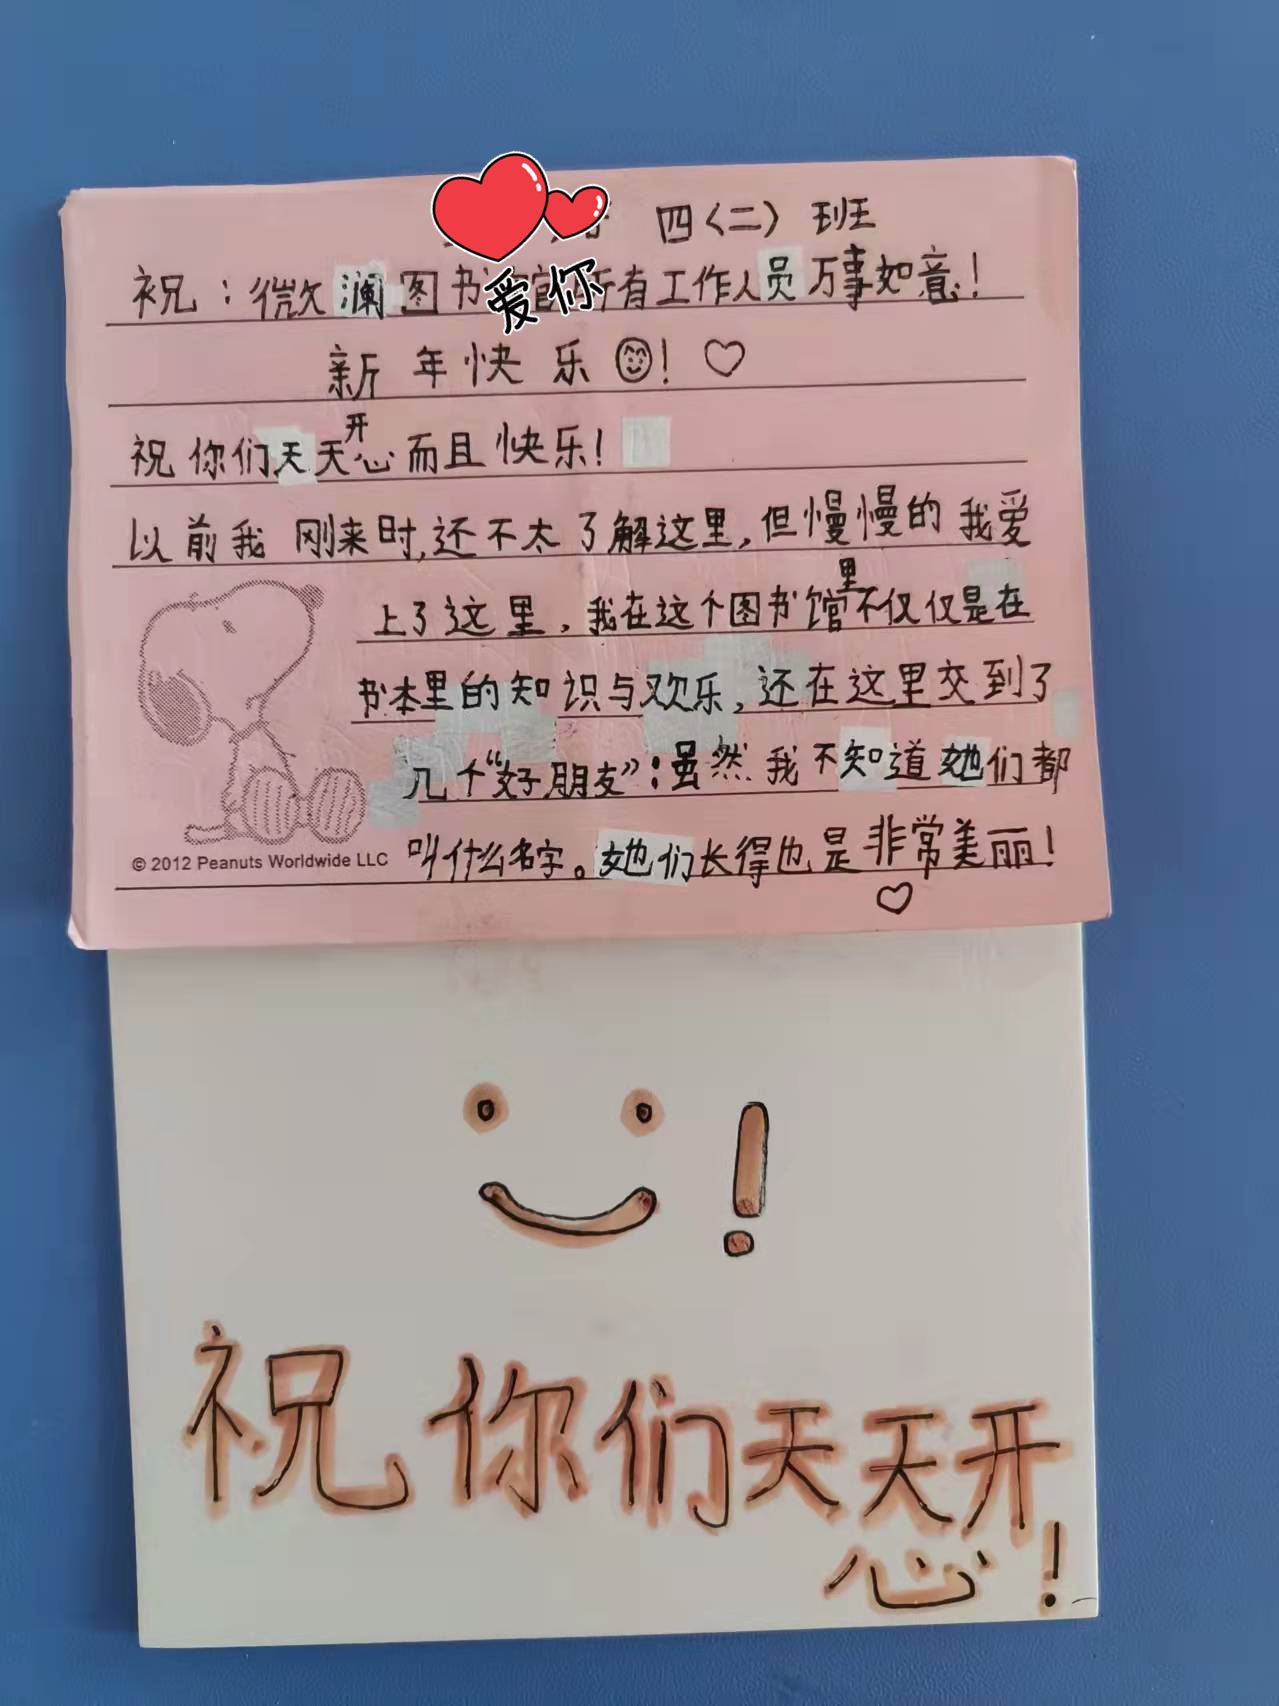 四（二）班
祝：微澜图书馆所有工作人员万事如意！
新年快乐！
祝你们天天开心而且快乐！
以前我刚来时,还不太了解这里,但慢慢的我爱
上了这里，我在这个图书馆里不仅仅是在
书本里的知识与欢乐,还在这里交到了
几个“好朋友”：虽然我不知道她们都
叫什么名字。她们长得也是非常美丽！
爱你
© 2012 Peanuts Worldwide LLC
！
祝你们天天开
心！